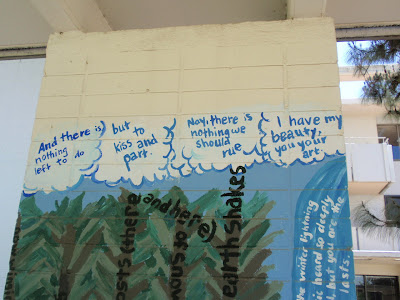 And there is
nothing
left to do
but to
kiss and
part.
Nay, there is
nothing we
should
rue
I have my
beauty,
you your
art.
osts there
and here
of snow
earthshakes
the winter lightning
is heard so clearly
l, but you are the
lasts.